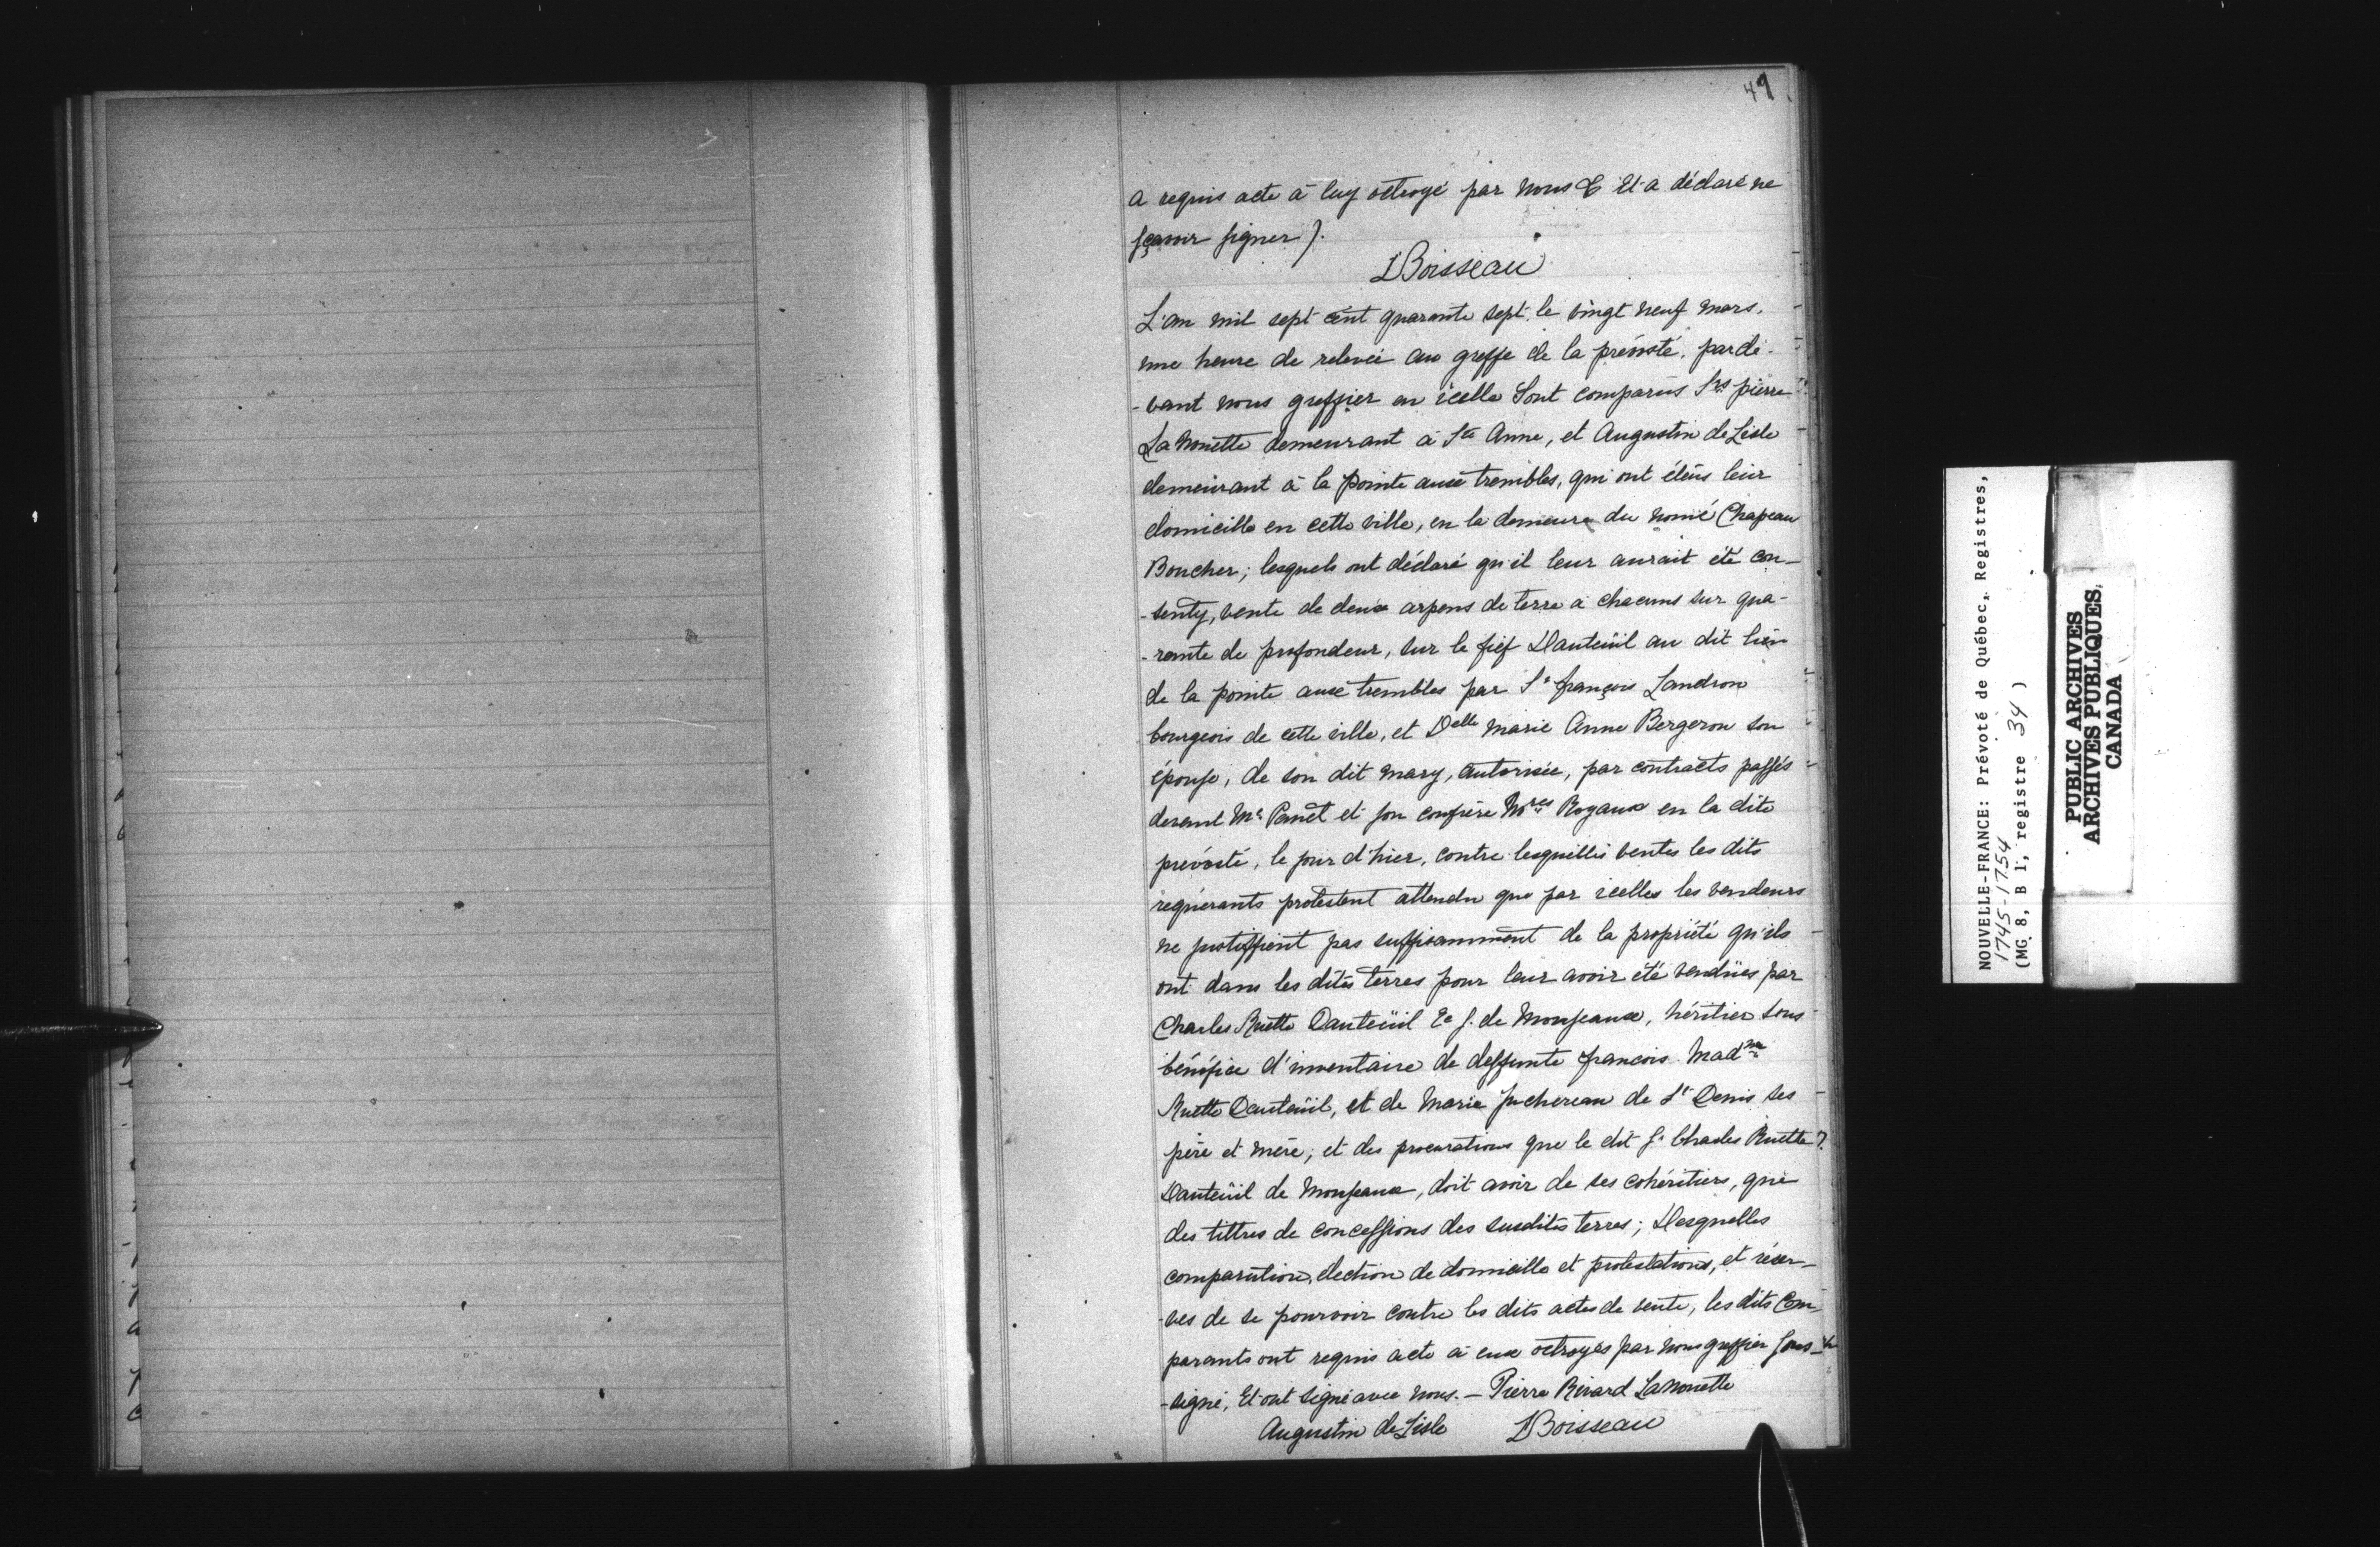 47
a requis acte à luy octroyé par nous & Et a déclaré ne
sçavoir signer).
DBoisseau
L'an mil sept cent quarante sept, le vingt neuf mars,
une heure de relevée au greffe de la prévosté, parde-
-vant nous greffier en icelle Sont comparus Srs pierre
LaNouette demeurant à Ste Anne, et Augustin de Lisle
demeurant à la pointe aux trembles, qui ont élëus leur
domicille en cette ville, en la demeure du nomé Chapeau
Boucher; lesquels ont déclaré qu'il leur aurait été con-
-senty, vente de deux arpens de terre à chacuns sur qua-
-rante de profondeur, sur le fief Dauteüil au dit lieu
de la pointe aux trembles par Sr françois Landron
bourgeois de cette ville, et Delle marie Anne Bergeron son
épouse, de son dit mary, autorisée, par contracts passés
devant Me Panet et son confrère Nores Royaux en la dite
prévosté, le jour d'hier, contre lesquelles ventes les dits
requérants protestent attendu que par icelles les vendeurs
ne justiffient pas suffisamment de la propriété qu'ils
ont dans les dites terres pour leur avoir été vendües par
Charles Ruette Dauteüil Ec S. de Monseaux, héritier sous
bénéfice d'inventaire de deffunte francois Mad.ne
Ruette Dauteüil, et de Marie Juchereau de St Denis ses
père et mère, et des procurations que le dit S. Charles Ruette
Dauteüil de Monseaux, doit avoir de ses cohéritiers, que
des tittres de concessions des susdites terres; Desquelles
comparution, élection de domicille et protestations, et réser-
-ves de se pourvoir contre les dits actes de vente, les dits Com-
parants ont requis acte à eux octroyés par nous greffier sous-
-signé, Et ont signé avec nous. — Pierre Rivard LaNouette
Augustin de Lisle DBoisseau
NOUVELLE-FRANCE: Prévoté de Québec, Registres,
1745-1754
(MG 8, B 1, registre 34 )
PUBLIC ARCHIVES
ARCHIVES PUBLIQUES
CANADA